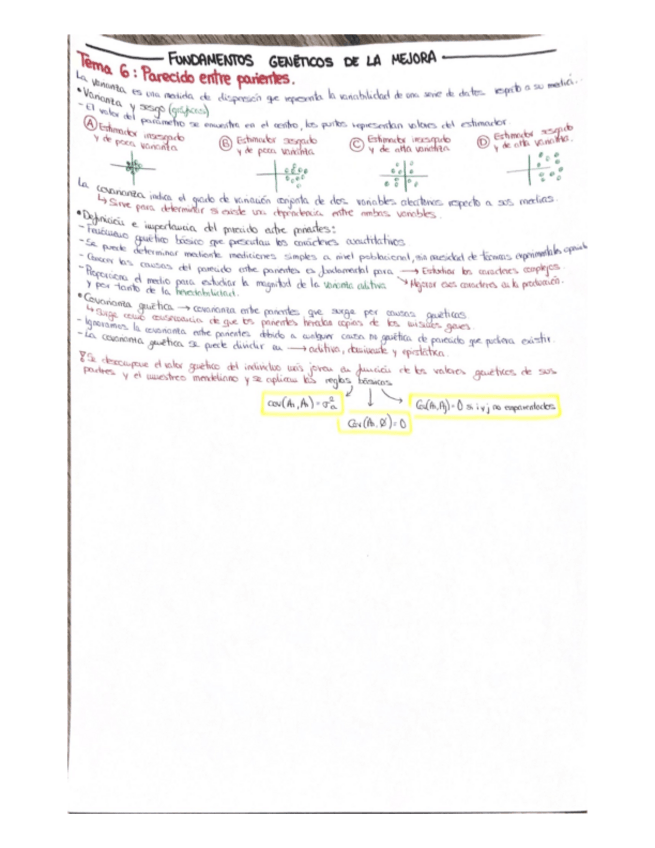 FUNDAMENTOS GENÉTICOS DE LA MEJORA
Tema 6: Parecido entre parientes.
La varianza es una medida de dispersión que representa la variabilidad de una serie de datos respecto a su media.
• Varianza y sesgo (gráficas)
- El valor del parámetro se encuentra en el centro, los puntos representan valores del estimador.
Ⓐ Estimador insesgado y de poca varianza
Ⓑ Estimador sesgado y de poca varianza
Ⓒ Estimador insesgado y de alta varianza
Ⓓ Estimador sesgado y de alta varianza.
La covarianza indica el grado de variación conjunta de dos variables aleatorias respecto a sus medias.
↳ Sirve para determinar si existe una dependencia entre ambas variables.
• Definición e importancia del parecido entre parientes:
- Fenómeno genético básico que presentan los caracteres cuantitativos
- Se puede determinar mediante mediciones simples a nivel poblacional, sin necesidad de técnicas experimentales
- Conocer las causas del parecido entre parientes es fundamental para → Estudiar los caracteres complejos.
- Proporciona el medio para estudiar la magnitud de la varianza aditiva → Mejorar esos caracteres en la producción.
y por tanto de la heredabilidad.
• Covarianza genética → covarianza entre parientes que surge por causas genéticas.
↳ Surge como consecuencia de que los parientes heredan copias de los mismos genes.
- Ignoramos la covarianza entre parientes debido a cualquier causa no genética de parecido que pudiera existir.
- La covarianza genética se puede dividir en → aditiva, dominante y epistática.
Se descompone el valor genético del individuo más joven en función de los valores genéticos de sus
padres y el muestreo mendeliano y se aplican las reglas básicas
cov(Ai, Ai) = σ²a
Cov(Ai, Ø) = 0
Cov(Ai, Aj) = 0 si i y j no emparentados